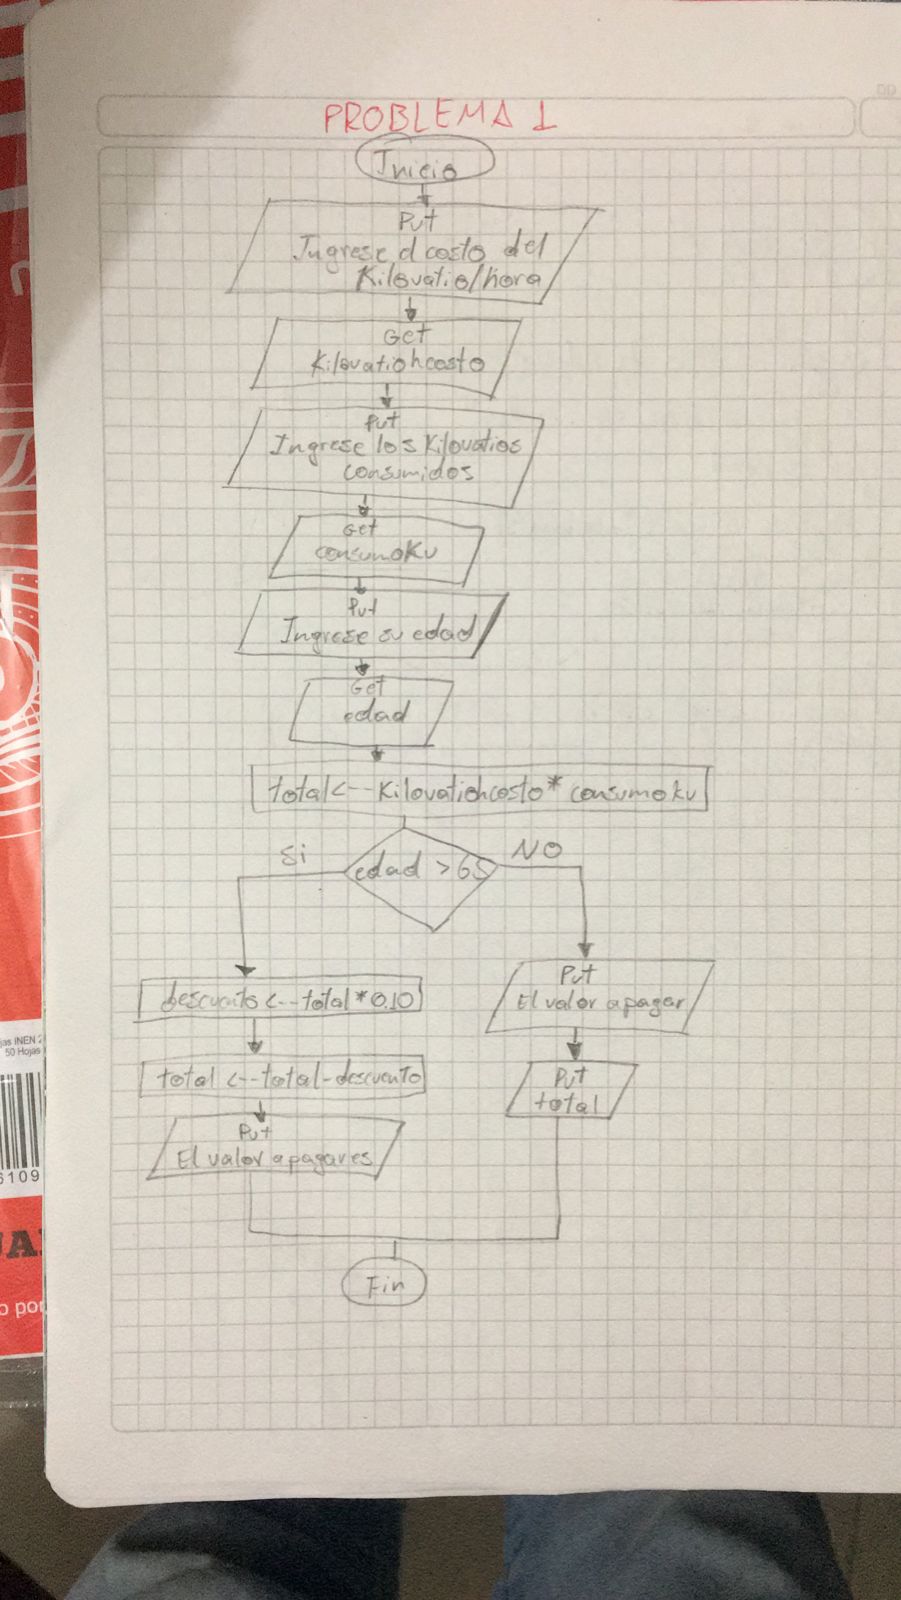 PROBLEMA 1
Inicio
Put
Ingrese el costo del
Kilovatio/hora
Get
Kilovatiohcosto
Put
Ingrese los Kilovatios
consumidos
Get
consumoKv
Put
Ingrese su edad
Get
edad
total <-- Kilovatiohcosto * consumokv
Si
edad > 65
NO
descuento <-- total * 0.10
total <-- total - descuento
Put
El valor a pagar es
Put
El valor a pagar
Put
total
Fin
50 Hojas
6109